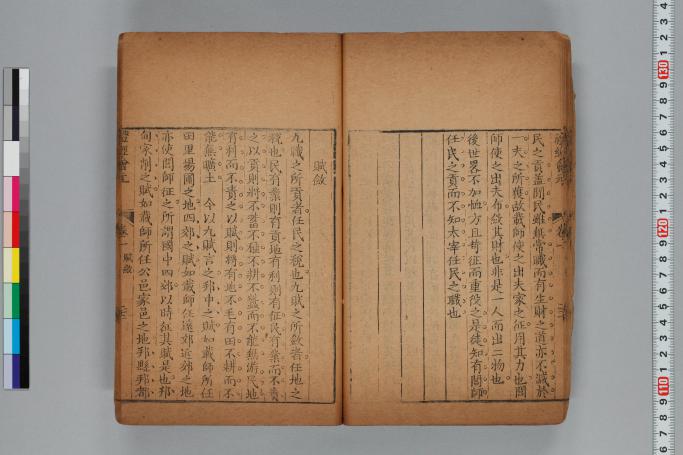 民之貢蓋閭民雖無常職而有生財之道亦不減於
一夫之所獲故載師使之出夫家之征用其力也閭
師使之出夫布斂其財也非是一人而出二物也
後世畧不加恤方且苛征而重役之是徒知有閭師
任民之貢而不知太宰任民之職也
賦斂
九職之所貢者任民之稅也九賦之所斂者任地之
稅也民有業則有貢地有利則有征民有業而不責
之以貢則將不畜不種不耕不蠶而不能勸游民地
有利而不責之以賦則將有地不毛有田不耕而不
能無曠土 今以九賦言之邦中之賦如載師所任
田里場圃之地四郊之賦如載師任遠郊近郊之地
亦使閭師征之所謂國中四郊以時征其賦是也邦
甸家削之賦如載師所任公邑家邑之地邦縣邦都
卷一 賦斂